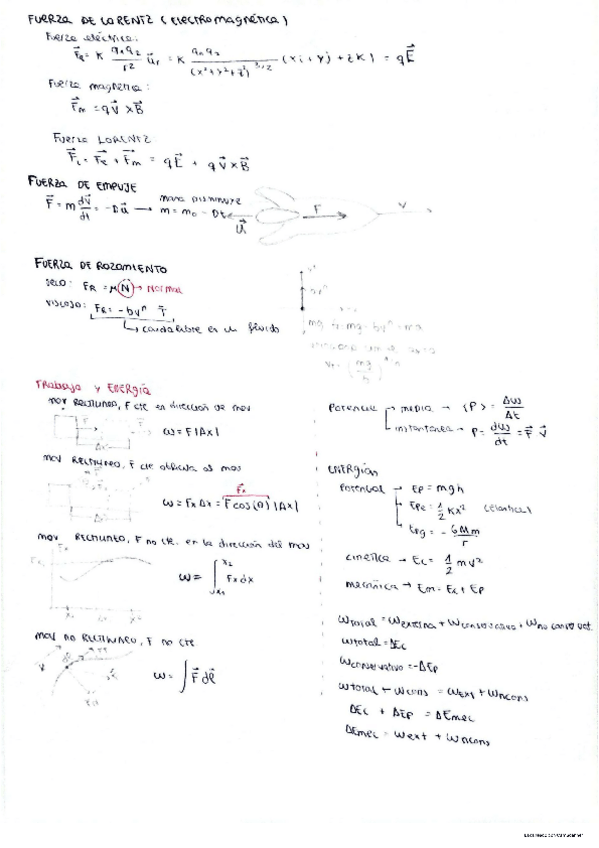 FUERZA DE LORENTZ (Electromagnética)
Fuerza eléctrica:
F⃗e = K q1q2/r² u⃗r = K q1q2/(x²+y²+z²)^3/2 (xi + yj + zk) = qE⃗
Fuerza magnética:
F⃗m = qV⃗ × B⃗
Fuerza LORENTZ:
F⃗L = F⃗e + F⃗m = qE⃗ + qV⃗ × B⃗
FUERZA DE EMPUJE
F⃗ = m dV⃗/dt = -Du⃗ → masa disminuye m = m0 - Dt
u⃗
F
V
FUERZA DE ROZAMIENTO
seco: FR = μN → Normal
viscoso: FR = -bvⁿ
caida libre en un fluido
Trabajo y ENERgía
mov RECTILINEO, F cte en dirección de mov
F
Δx
W = F|Δx|
mov RECTILINEO, F cte oblicua al mov
Fx
W = FxΔx = F cos(θ)|Δx|
mov RECTILINEO, F no cte. en la dirección del mov
Fx
x1
x2
W = ∫x1 x2 Fx dx
mov no RECTILINEO, F no cte
W = ∫ F⃗ dl⃗
Potencia → media → (P) = ΔW/Δt
instantanea → P = dW/dt = F⃗ V⃗
ENERGIAS
Potencial → Ep = mgh
Epe = 1/2 Kx² (elastica)
Epg = - GMm/r
cinética → Ec = 1/2 mv²
mecánica → Em = Ec + Ep
Wtotal = Wexterna + Wconservativo + Wno conservat.
Wtotal = ΔEc
Wconservativo = -ΔEp
Wtotal + Wcons = Wext + Wncons
ΔEc + ΔEp = ΔEmec
ΔEmec = Wext + Wncons